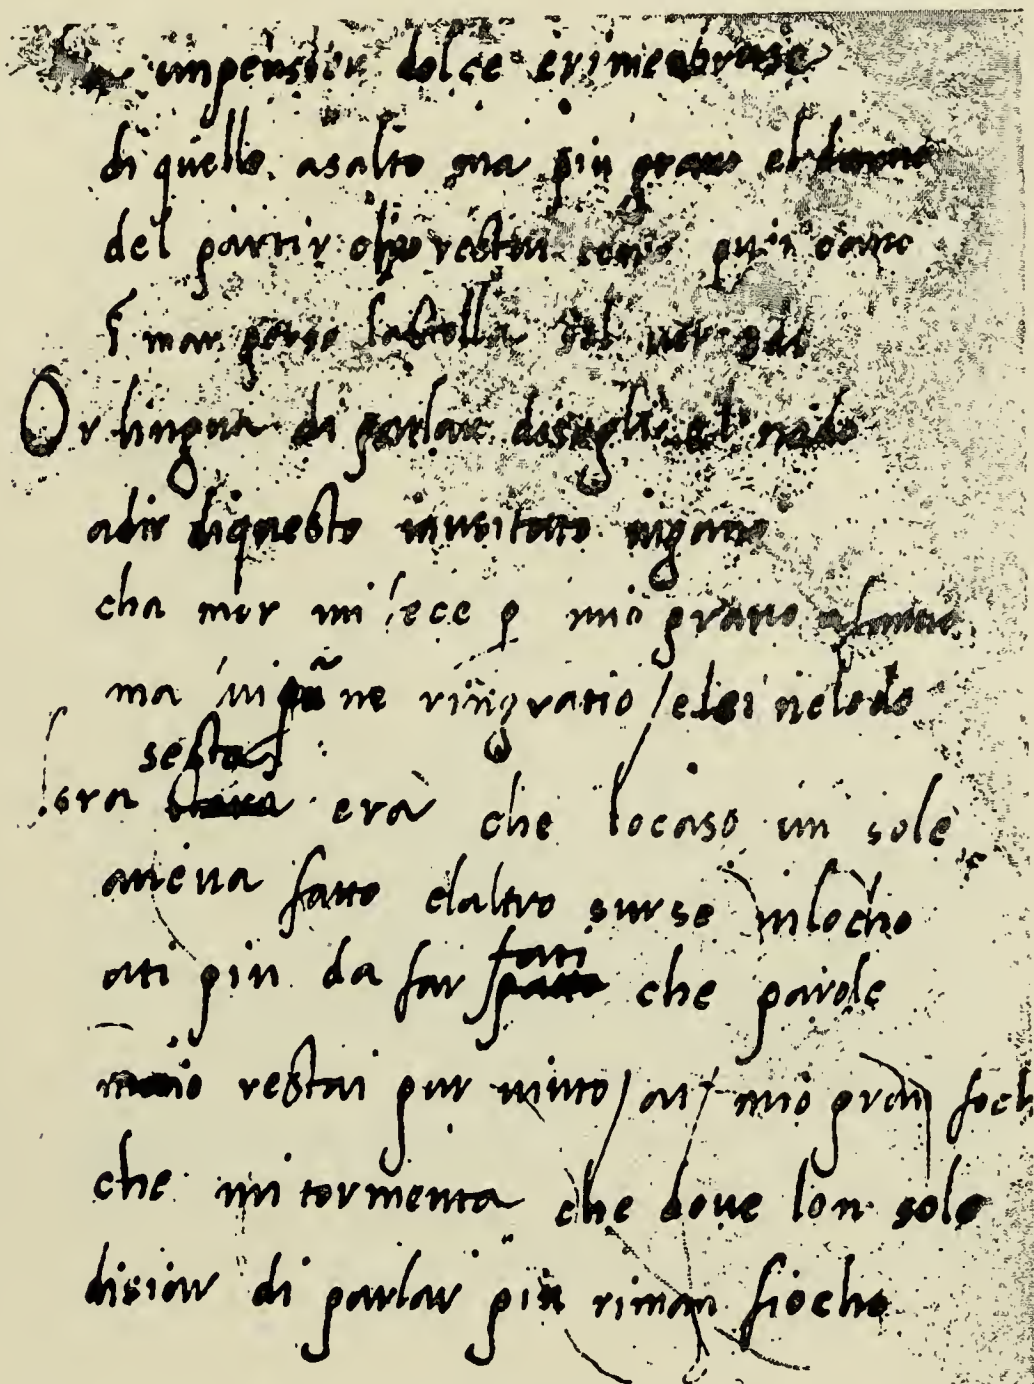 unpensier dolce erimembrase
di quello. asalto ma piu gravo el danno
del partir chio restai como quei cano
ī mar perso lastella sel ver odo
Or lingua di parlar disogli el nodo
adir diquesto inusitato ingano
cha mor mi fece p̱ mio gravo afanno
ma lui pū ne ringratio / elei nelodo
sesta
lora era che locaso un sole
aueua fatto elaltro surse inlocho
fati
ati piu da far che parole
maio restai pur uinto / al mio gran foch
che mi tormenta che doue lon sole
disiar di parlar piu riman fiocho